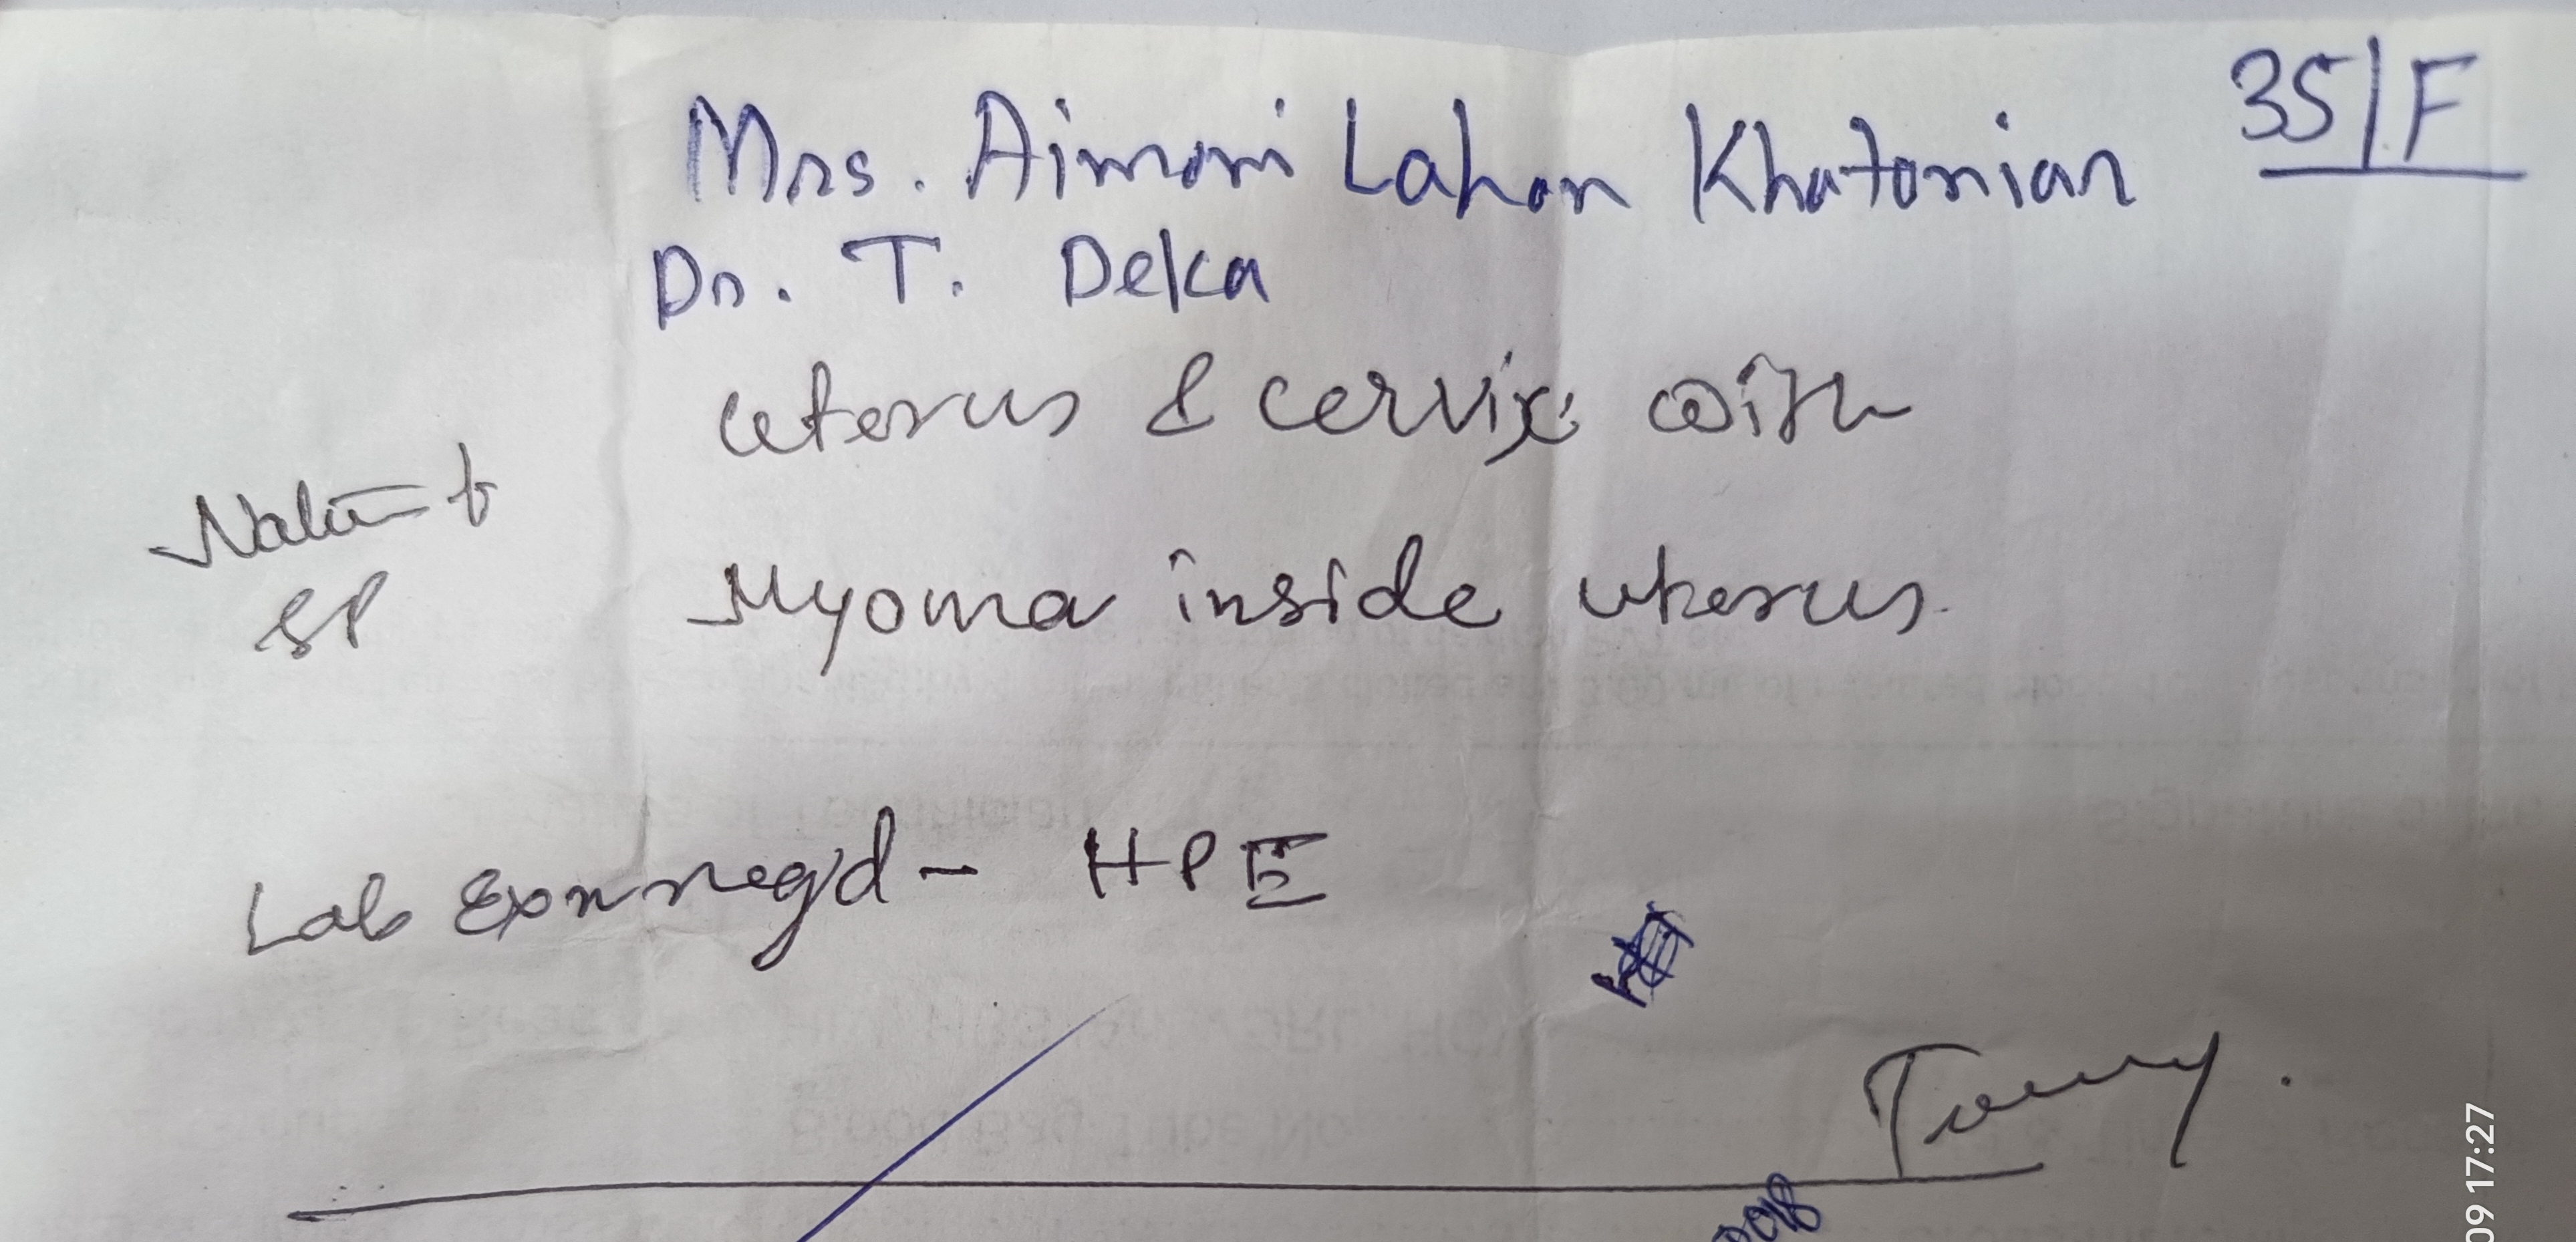 35/F
Mrs. Aimoni Lahon Khatonian
Dr. T. Deka
Uterus & cervix with
Nature of
SP
Myoma inside uterus.
Lab Exn reqd - HPE
09 17:27